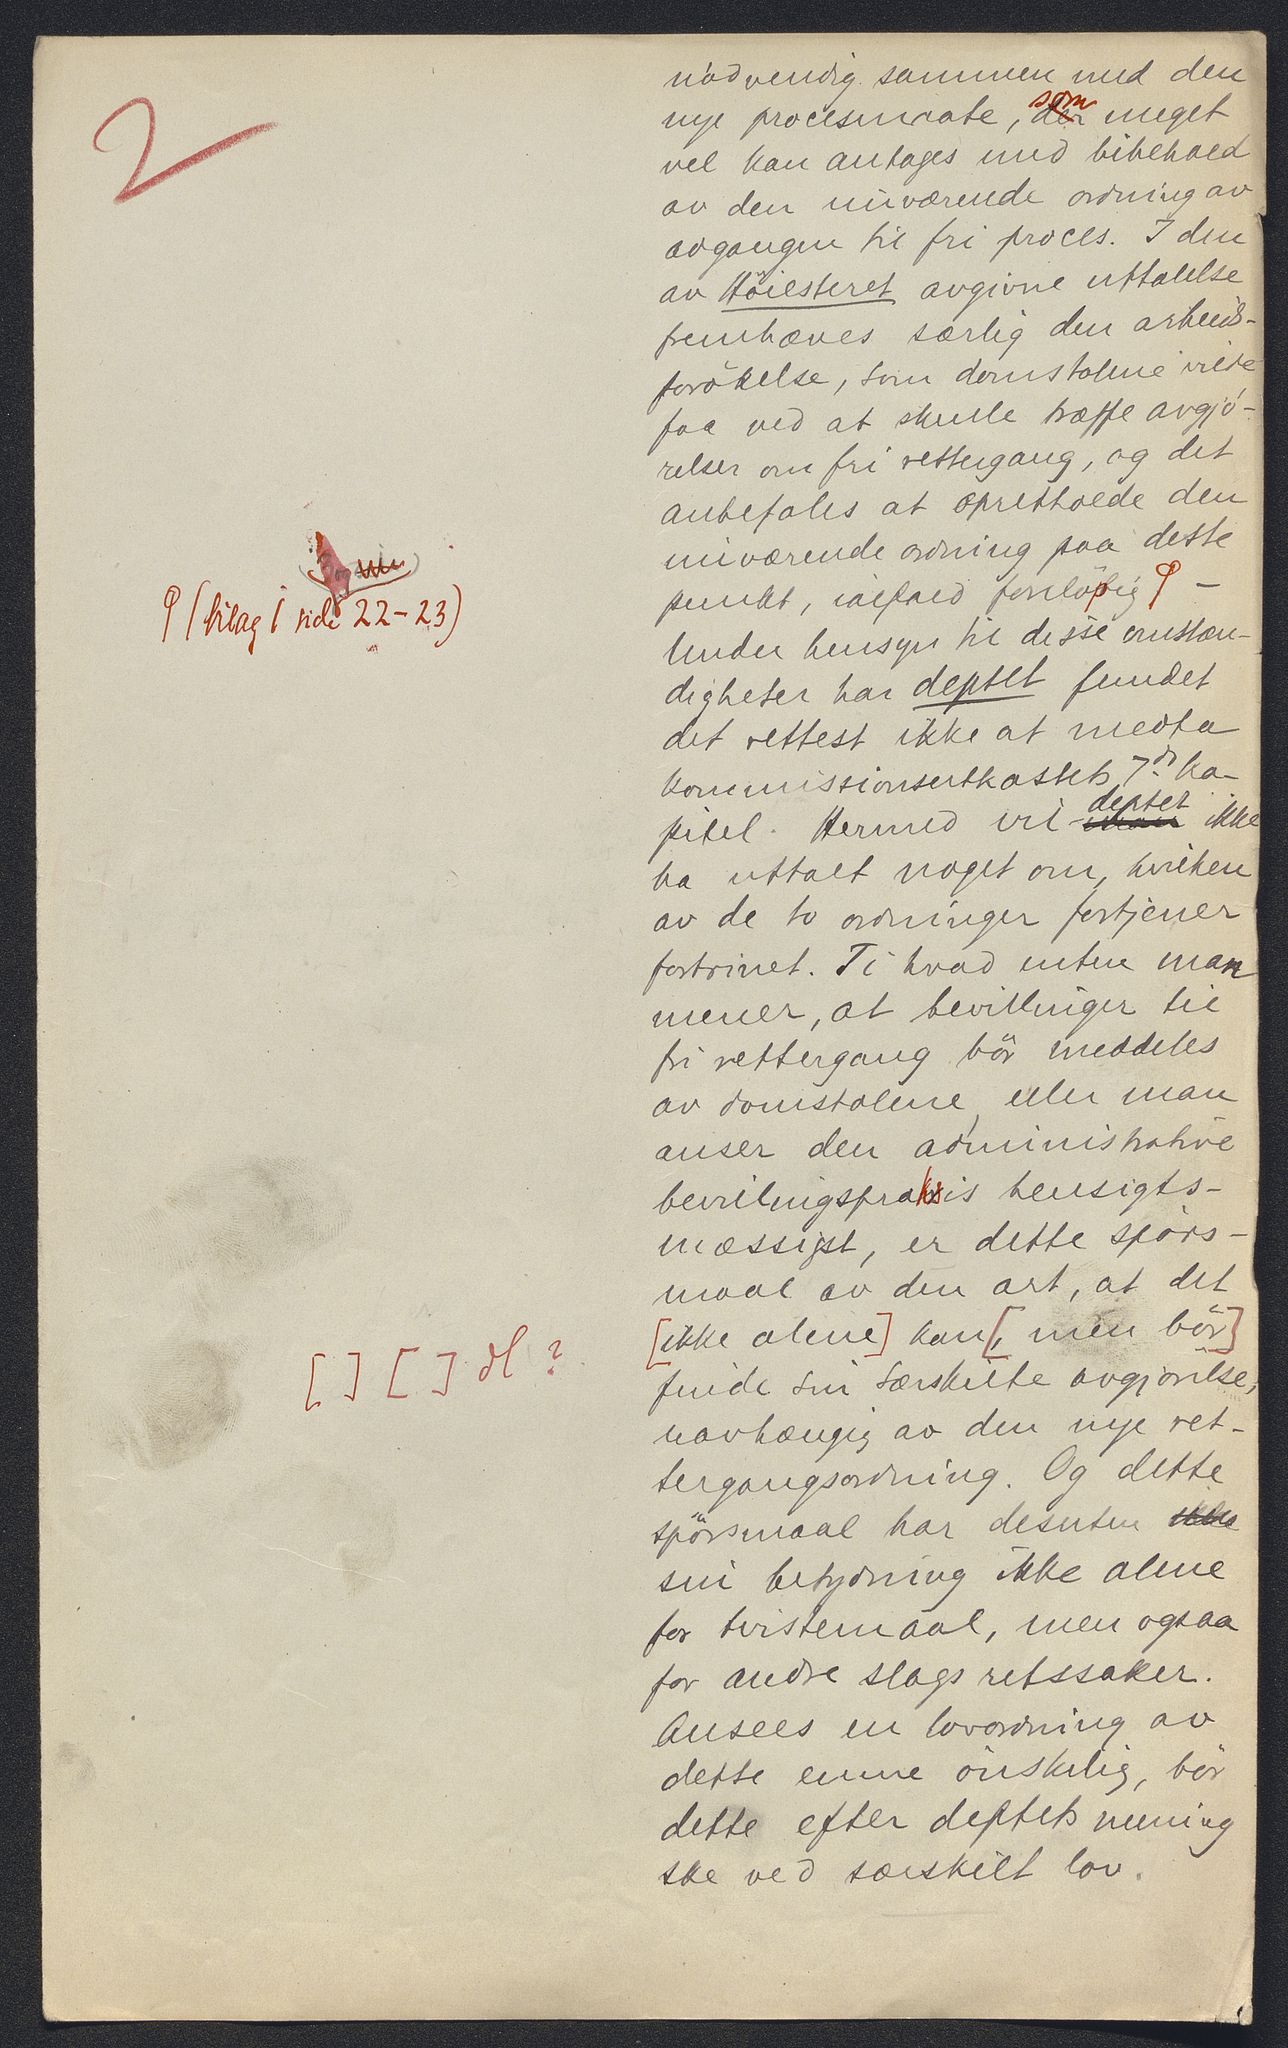 2
nödvendig sammen med den
nye procesmaate, der som meget
vel kan antages med bibehold
av den nuværende ordning av
avgangen til fri proces. I den
av Höiesteret avgivne uttalelse
fremhæves særlig den arbeids-
forökelse, som domstolene vilde
faa ved at skulle træffe avgjö-
relser om fri rettergang, og det
anbefales at opretholde den
nuværende ordning paa dette
punkt, ialfald forelöpig ꟼ -
ꟼ (bilag 1 side 22-23)
Under hensyn til disse omstæn-
digheter har deptet fundet
det rettest ikke at medta
kommissionsutkastets 7de ka-
pitel. Hermed vil deptet ikke
ha uttalt noget om, hvilken
av de to ordninger fortjener
fortrinet. Ti hvad enten man
mener, at bevillinger til
fri rettergang bör meddeles
av domstolene, eller man
anser den administrative
bevilningspraksis hensigts-
mæssigst, er dette spörs-
maal av den art, at det
[ikke alene] kan [, men bör]
[ ] [ ] dl ?
finde sin særskilte avgjörelse,
uavhængig av den nye ret-
tergangsordning. Og dette
spörsmaal har desuten ikke
sin betydning ikke alene
for tvistemaal, men ogsaa
for andre slags retssaker.
Ansees en lovordning av
dette emne önskelig, bör
dette efter deptets mening
ske ved særskilt lov.